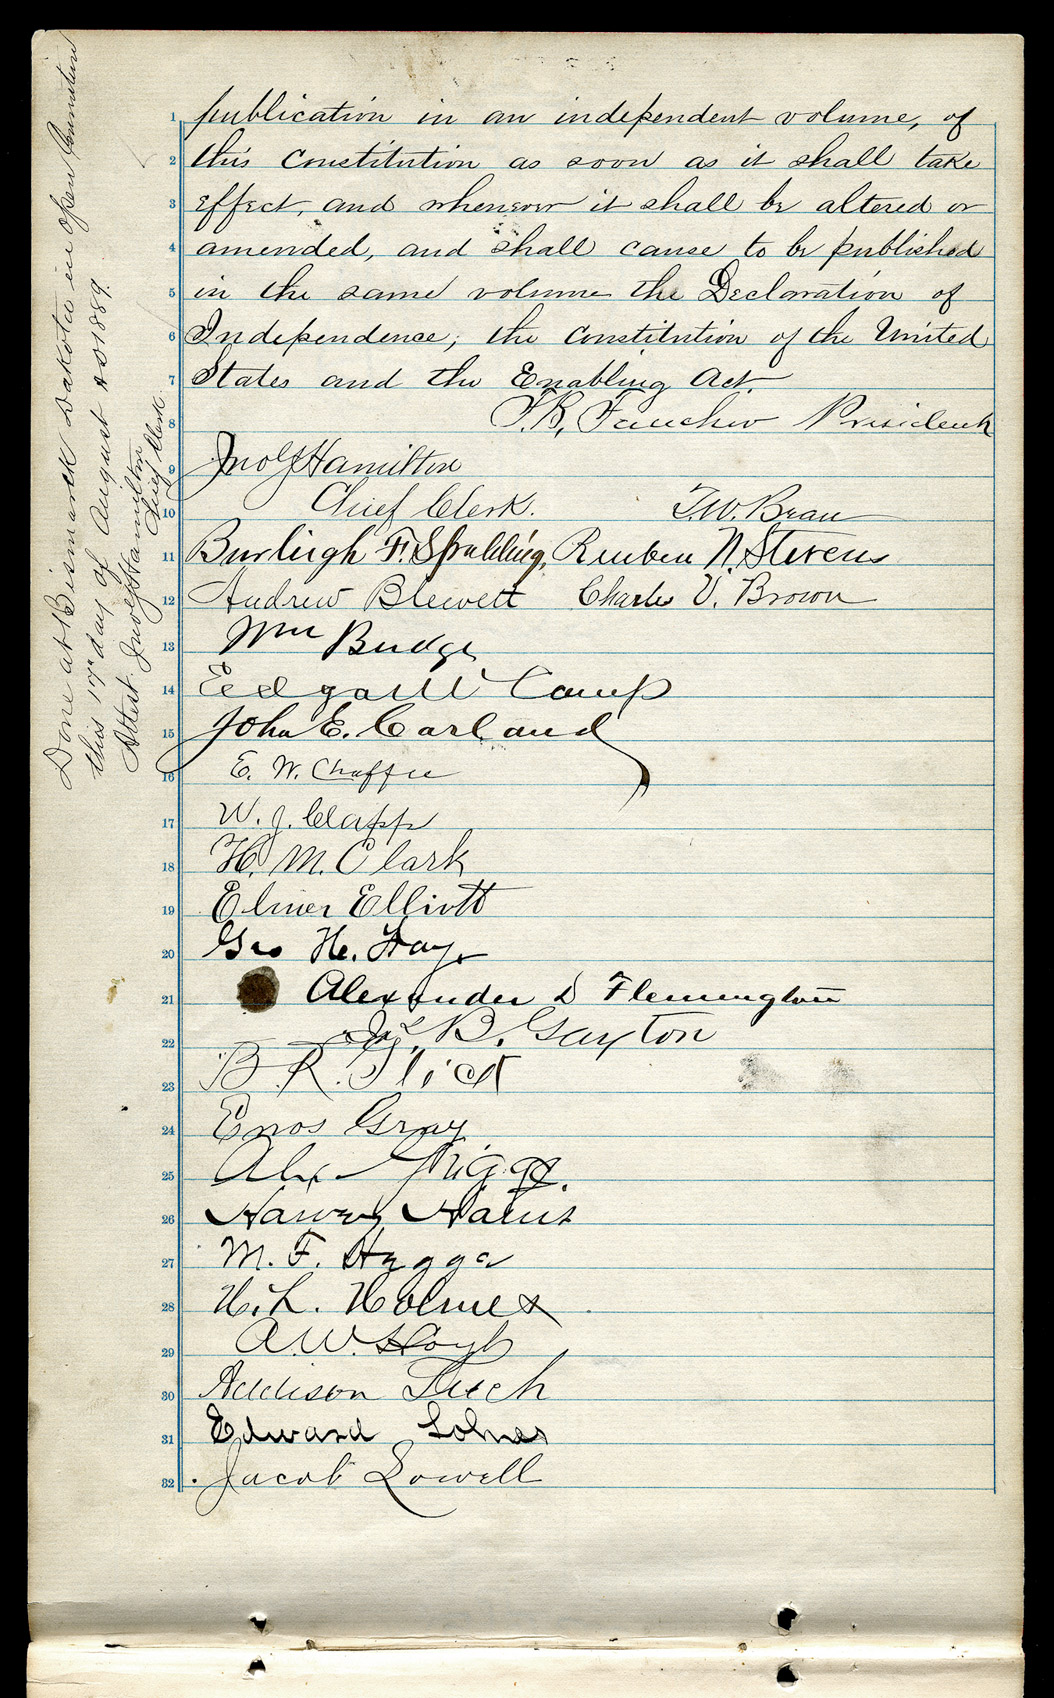 Done at Bismarck Dakota in open Convention
this 17" day of August AD 1889.
Attest Jno G Hamilton
Chief Clerk
1 publication in an independent volume, of
2 this Constitution as soon as it shall take
3 effect, and whenever it shall be altered or
4 amended, and shall cause to be published
5 in the same volume the Declaration of
6 Independence, the Constitution of the United
7 States and the Enabling Act.
8 F. B. Fancher President
9 Jno G Hamilton
10 Chief Clerk. T. W. Bean
11 Burleigh F. Spalding, Reuben N. Stevens
12 Andrew Blewett Charles V. Brown
13 Wm Budge
14 Edgar W Camp
15 John E. Carland
16 E. W. Chaffee
17 W. J. Clapp
18 H. M. Clark
19 Elmer Elliott
20 Geo H. Fay
21 Alexander D Flemington
22 Jas. B. Gayton
23 B. R. Glick
24 Enos Gray
25 Alex Griggs.
26 Harvey Harris
27 M. F. Hegge
28 H. L. Holmes
29 A. W. Hoyt
30 Addison Leech
31 Edward Lohnes
32 Jacob Lowell